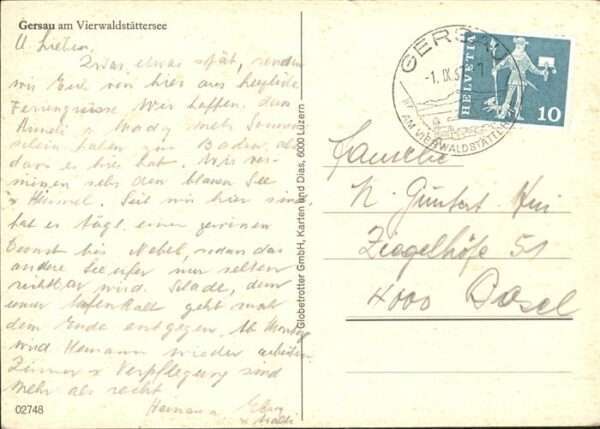 Gersau am Vierwaldstättersee
U. Lieben,
Zwar etwas spät, senden
wir Euch von hier aus herzliche
Feriengrüsse. Wir hoffen, dass
Ruedi + mehr Sonnen-
schein haben zum Baden, als
dass es hier hat. Wir ver-
missen sehr den blauen See
+ Himmel. Seit wir hier sind,
hat es tägl. einen gewissen
Dunst bis Nebel, sodass das
andere Seeufer nur selten
sichtbar wird. Schade, denn
unser Aufenthalt geht
dem Ende entgegen. Ab Montag
wird Hermann wieder arbeiten.
Zimmer + Verpflegung sind
mehr als recht.
Hermann
02748
Globetrotter GmbH, Karten und Dias, 6000 Luzern
GERSAU
-1. IX. 6
AM VIERWALDSTÄTTERSEE
HELVETIA
10
Familie
N. Güntert
Ziegelhöfe 51
4000 Basel